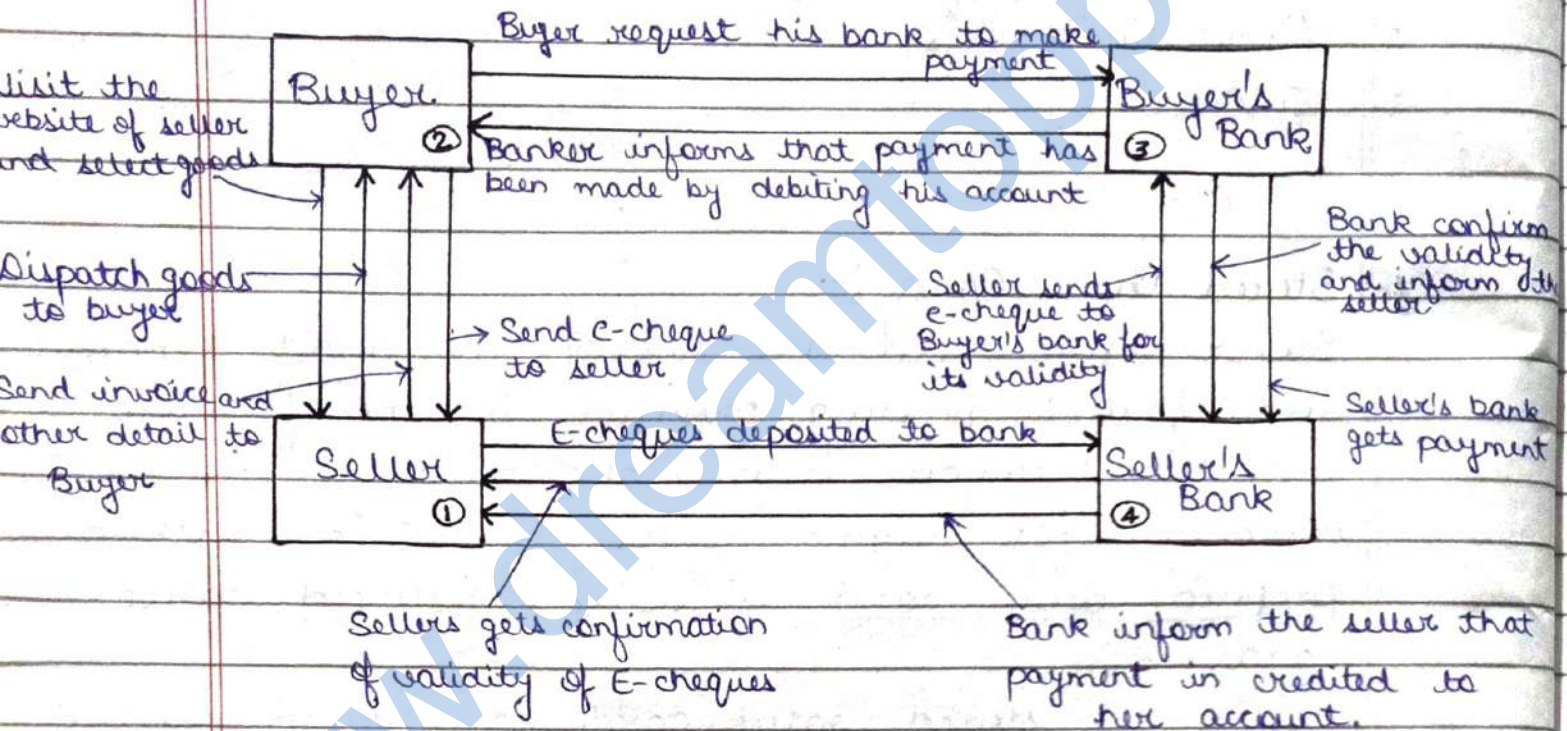 Buyer request his bank to make
payment
Buyer.
②
Buyer's
Bank
③
Banker informs that payment has
been made by debiting his account
Visit the
website of seller
and select goods
Dispatch goods
to buyer
Send invoice and
other detail to
Buyer
Send e-cheque
to seller
Seller sends
e-cheque to
Buyer's bank for
its validity
Bank confirm
the validity
and inform
seller
Seller's bank
gets payment
E-cheques deposited to bank
Seller
①
Seller's
Bank
④
Sellers gets confirmation
of validity of E-cheques
Bank inform the seller that
payment in credited to
her account.
w.dreamtopp